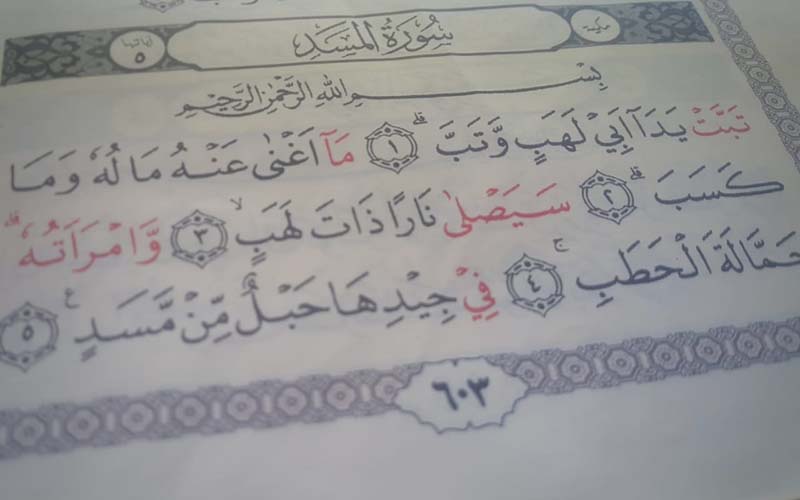 مكية
سُورَةُ الْمَسَدِ
اٰياتها ٥
بِسْمِ اللّٰهِ الرَّحْمٰنِ الرَّحِيْمِ
تَبَّتْ يَدَآ اَبِيْ لَهَبٍ وَّتَبَّۗ ١ مَآ اَغْنٰى عَنْهُ مَالُهٗ وَمَا
كَسَبَۗ ٢ سَيَصْلٰى نَارًا ذَاتَ لَهَبٍۙ ٣ وَّامْرَاَتُهٗۗ
حَمَّالَةَ الْحَطَبِۚ ٤ فِيْ جِيْدِهَا حَبْلٌ مِّنْ مَّسَدٍ ࣖ ٥
٦٠٣